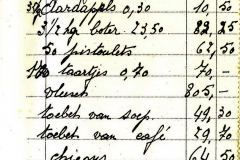 Aardappels 0,30 10,50
3 1/2 kg boter 23,50 82,25
50 pistolets 62,50
100 taartjes 0,70 70,-
vleesch 805,-
toebet van soep. 49,30
toebet van café 29,70
64,50